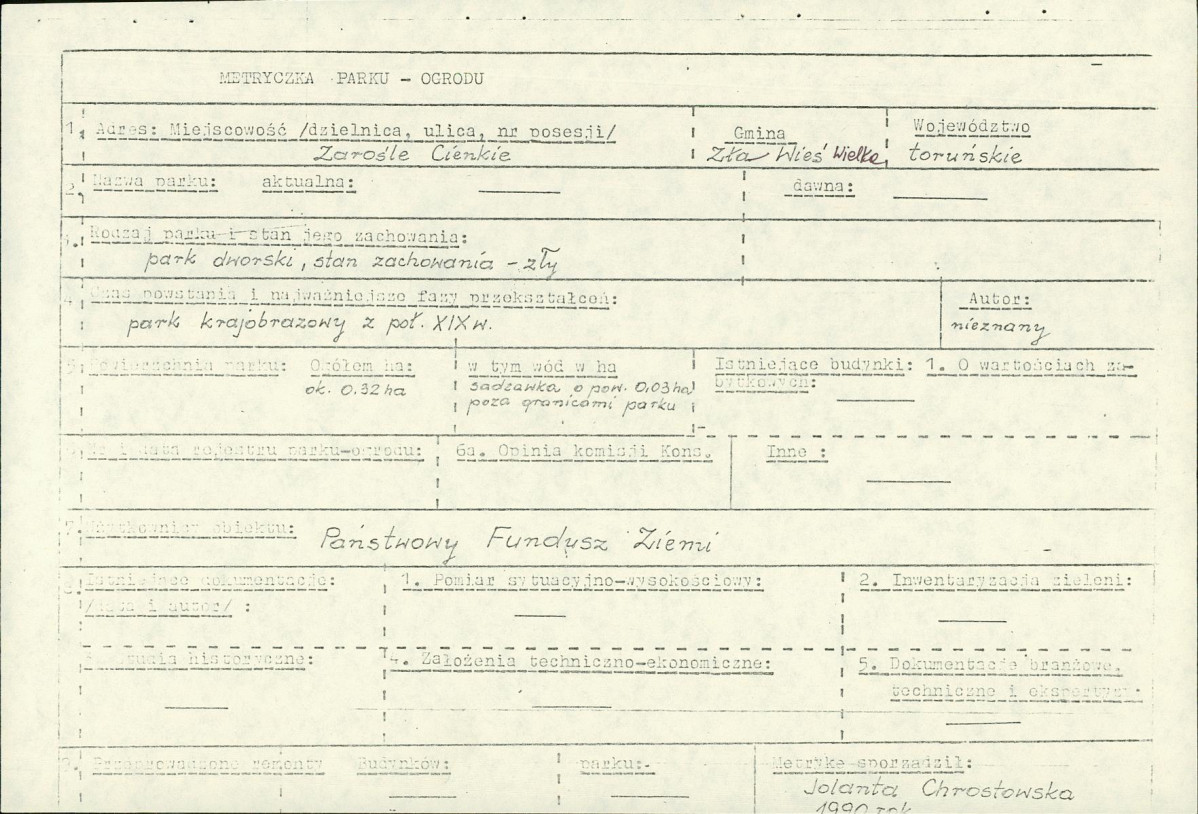 METRYCZKA PARKU - OGRODU
1. Adres: Miejscowość /dzielnica, ulica, nr posesji/
Zarośle Cienkie
Gmina
Zła Wieś Wielka
Województwo
toruńskie
2. Nazwa parku: aktualna: ——— dawna: ———
Rodzaj parku i stan jego zachowania:
park dworski, stan zachowania - zły
4. Czas powstania i najważniejsze fazy przekształceń:
park krajobrazowy z poł. XIX w.
Autor:
nieznany
5. Powierzchnia parku: Ogółem ha:
ok. 0.32 ha
w tym wód w ha
sadzawka o pow. 0,03 ha
poza granicami parku
Istniejące budynki: 1. O wartościach za-
bytkowych:
Nr i data rejestru parku-ogrodu:
6a. Opinia komisji Kons.
Inne :
7. Użytkownicy obiektu:
Państwowy Fundusz Ziemi
8. Istniejące dokumentacje:
/data i autor/ :
1. Pomiar sytuacyjno-wysokościowy:
2. Inwentaryzacja zieleni:
historyczne:
4. Założenia techniczno-ekonomiczne:
5. Dokumentacje branżowe,
techniczne i ekspertyzy
9. Przeprowadzone remonty Budynków: parku:-
Metrykę sporządził:
Jolanta Chrostowska
1990 rok